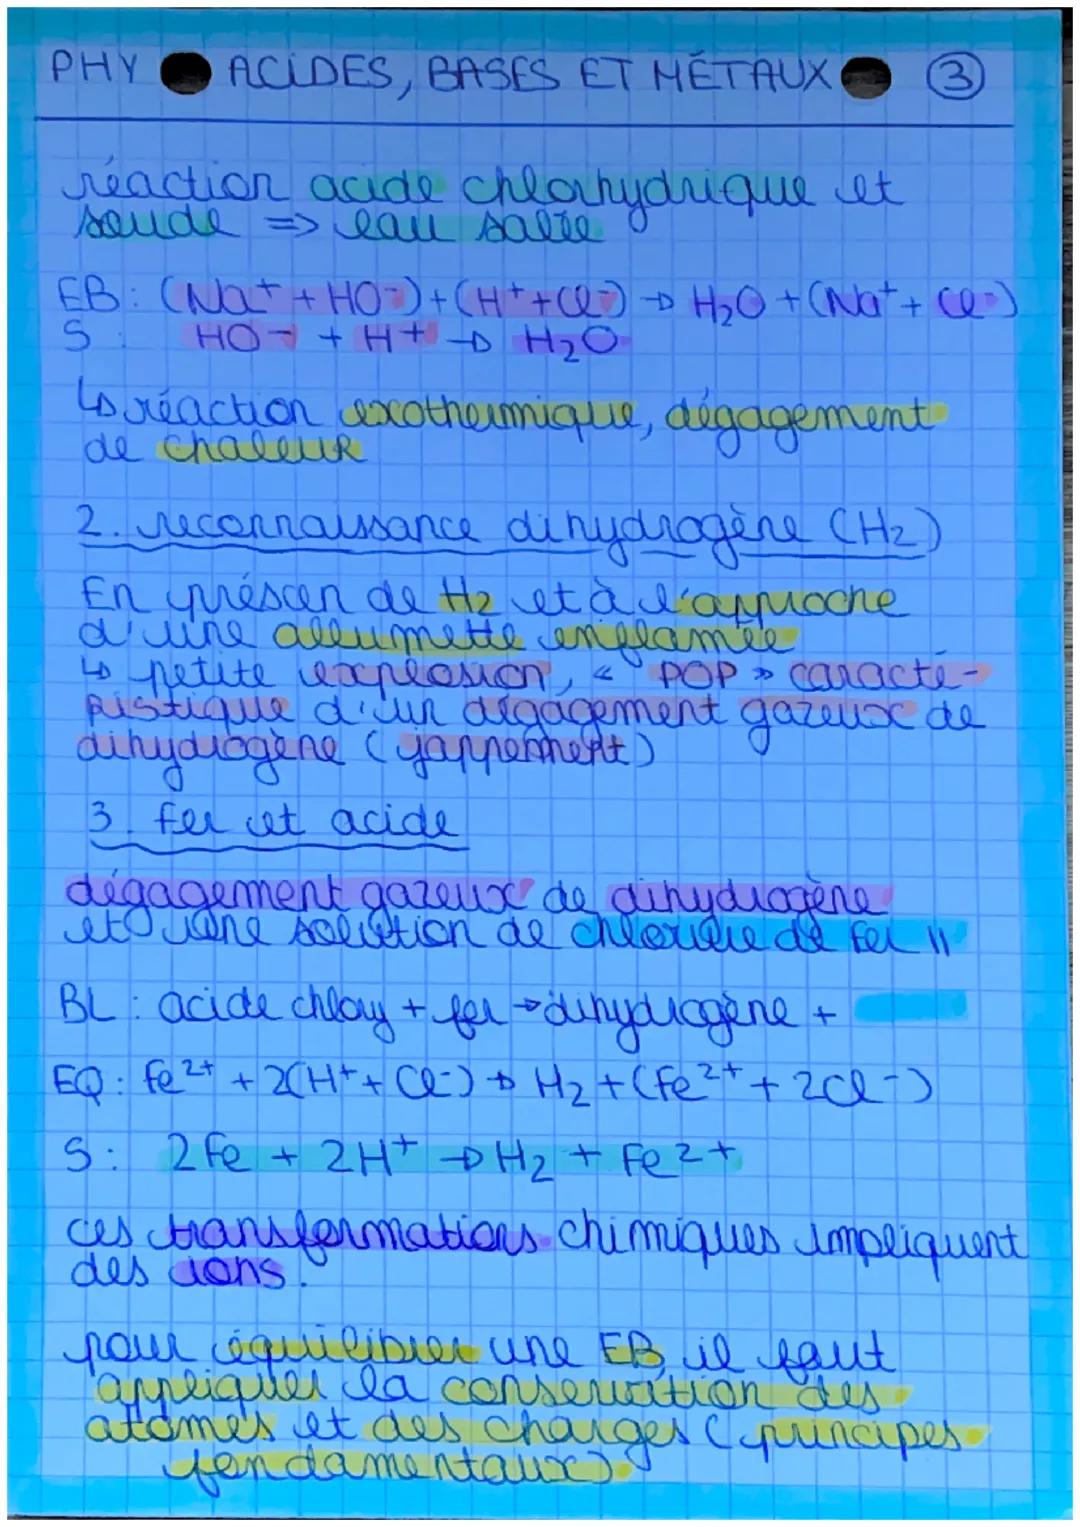 PHY ACIDES, BASES ET MÉTAUX 3
réaction acide chlorhydrique et
soude => eau salée
EB : (Na⁺ + HO⁻) + (H⁺ + Cl⁻) → H₂O + (Na⁺ + Cl⁻)
S : HO⁻ + H⁺ → H₂O
↳ réaction exothermique, dégagement
de chaleur
2. reconnaissance dihydrogène (H₂)
En présen de H₂ et à l'approche
d'une allumette enflamée
↳ petite explosion, « POP » caracté-
ristique d'un dégagement gazeux de
dihydrogène (jappement)
3. fer et acide
dégagement gazeux de dihydrogène
et une solution de chlorure de fer II
BL : acide chlory + fer → dihydrogène +
EQ : Fe²⁺ + 2(H⁺ + Cl⁻) → H₂ + (Fe²⁺ + 2Cl⁻)
S : 2Fe + 2H⁺ → H₂ + Fe2+
ces transformations chimiques impliquent
des ions.
pour équilibrer une EB, il faut
appliquer la conservation des
atomes et des charges (principes
fondamentaux)